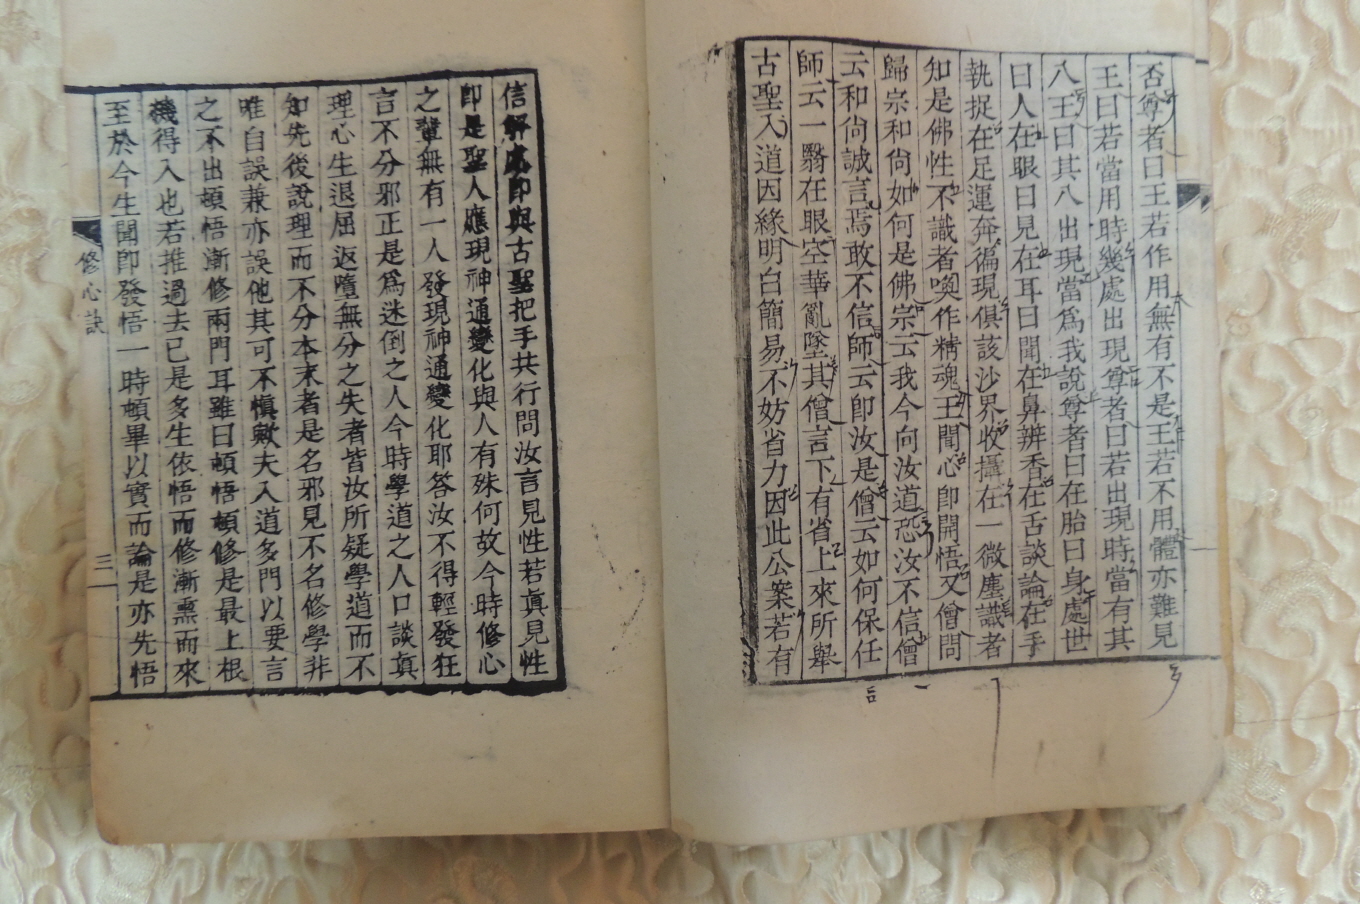 否尊者曰王若作用無有不是王若不用體亦難見
王曰若當用時幾處出現尊者曰若出現時當有其
八王曰其八出現當爲我說尊者曰在胎曰身處世
曰人在眼曰見在耳曰聞在鼻辨香在舌談論在手
執捉在足運奔徧現俱該沙界收攝在一微塵識者
知是佛性不識者喚作精魂王聞心卽開悟又僧問
歸宗和尙如何是佛宗云我今向汝道恐汝不信僧
云和尙誠言焉敢不信師云卽汝是僧云如何保任
師云一翳在眼空華亂墜其僧言下有省上來所擧
古聖入道因緣明白簡易不妨省力因此公案若有
信解處卽與古聖把手共行問汝言見性若眞見性
卽是聖人應現神通變化與人有殊何故今時修心
之輩無有一人發現神通變化耶答汝不得輕發狂
言不分邪正是爲迷倒之人今時學道之人口談眞
理心生退屈返墮無分之失者皆汝所疑學道而不
知先後說理而不分本末者是名邪見不名修學非
唯自誤兼亦誤他其可不愼歟夫入道多門以要言
之不出頓悟漸修兩門耳雖曰頓悟頓修是最上根
機得入也若推過去已是多生依悟而修漸熏而來
至於今生聞卽發悟一時頓畢以實而論是亦先悟
修心訣
三